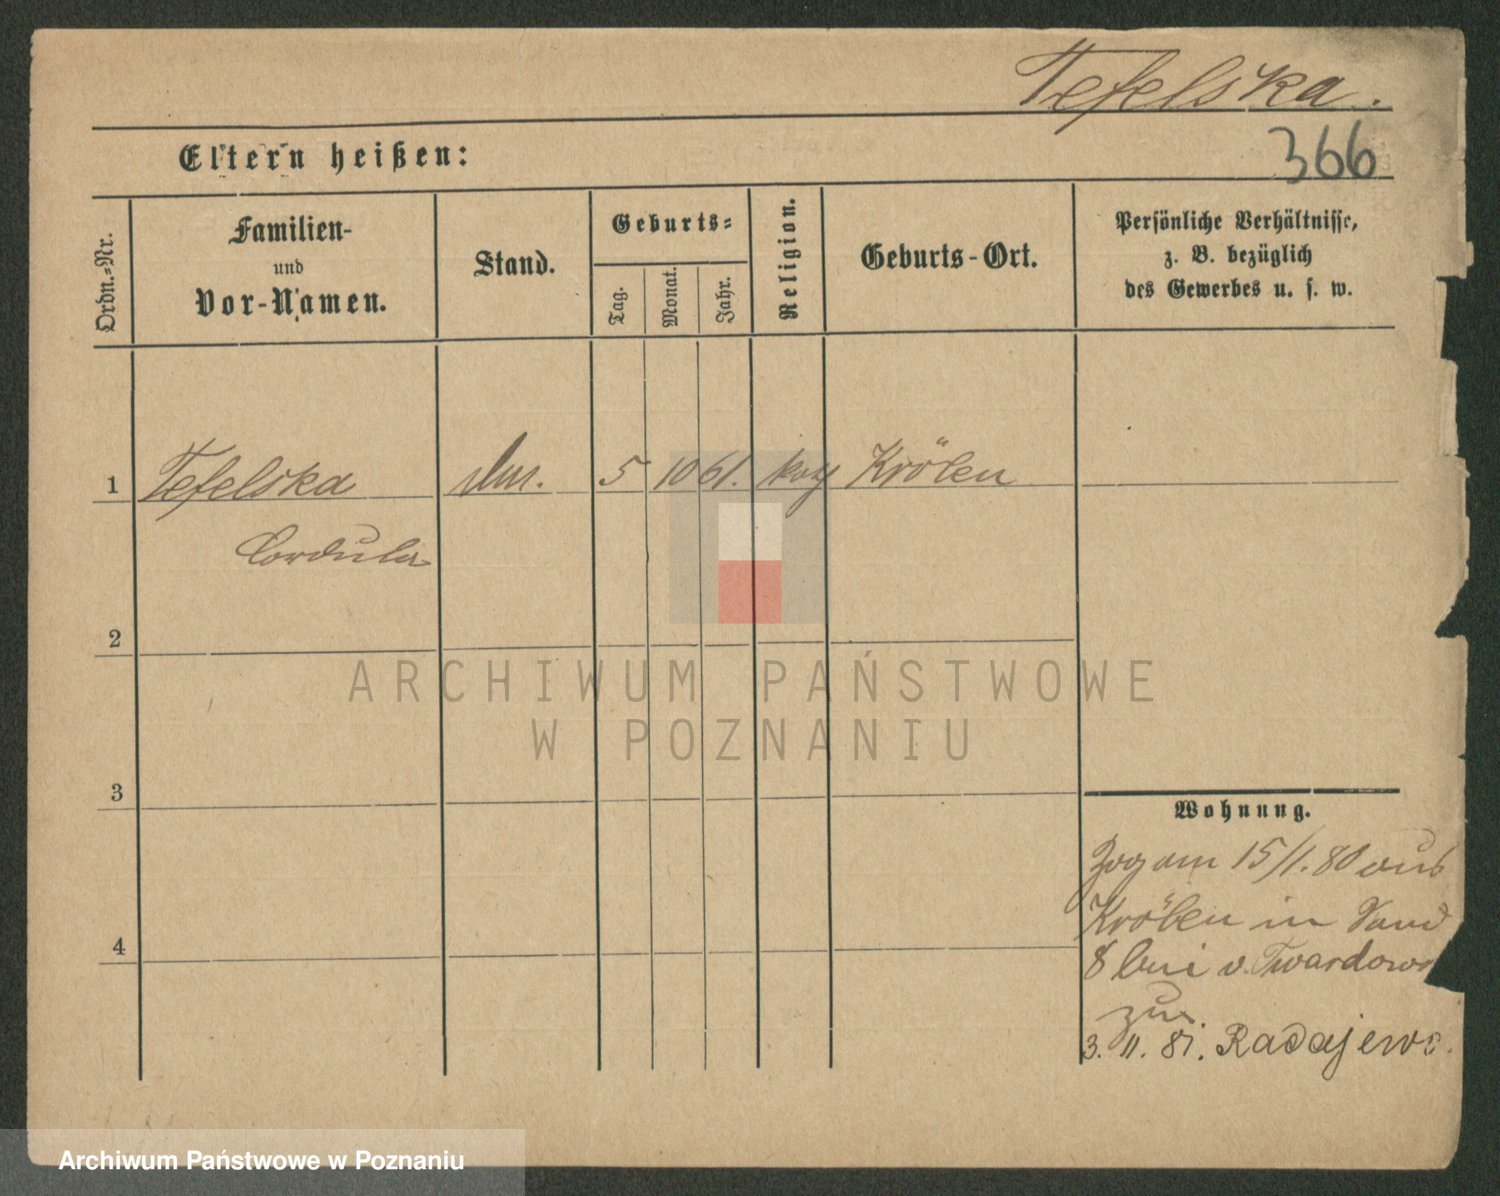 Tefelska.
Eltern heißen:
366
Ordn.=Nr.
Familien-
und
Vor-Namen.
Stand.
Geburts=
Tag.
Monat.
Jahr.
Religion.
Geburts-Ort.
Persönliche Verhältnisse,
z. B. bezüglich
des Gewerbes u. s. w.
1 Tefelska 5 10 61. Kröben
Cordula
2
3
4
Wohnung.
Zog am 15/1. 80 aus
Kröben in Sand
8 bei v. Twardows
zu
3. 11. 81. Radajewo.
ARCHIWUM PAŃSTWOWE
W POZNANIU
Archiwum Państwowe w Poznaniu